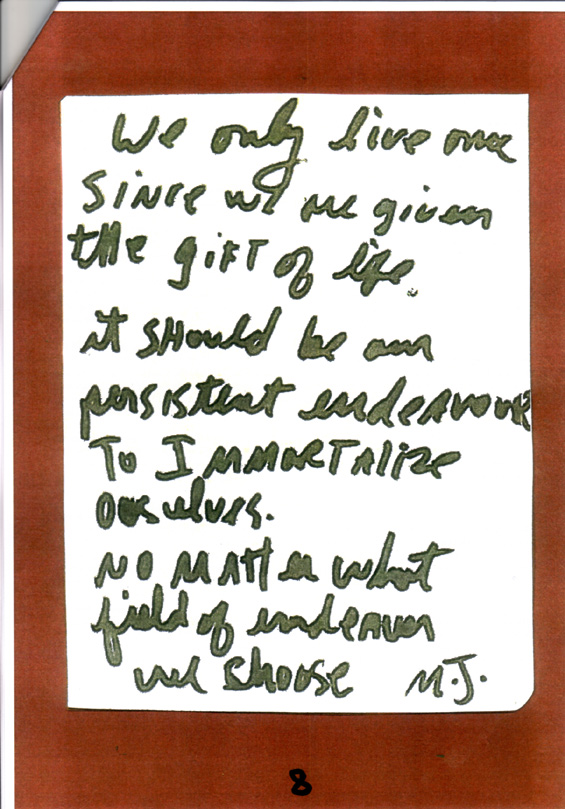 We only live once
SINCE we are given
the GIFT of life.
it SHould be our
persistent endeavour
To IMMORTALIZE
ourselves.
NO MATTer what
field of endeavor
we choose M.J.
8